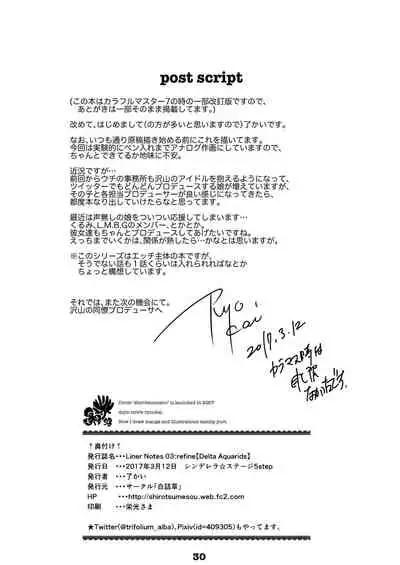 post script
(この本はカラフルマスター7の時の一部改訂版ですので、
あとがきは一部そのまま掲載してます。)
改めて、はじめまして(の方が多いと思いますので)了かいです。
なお、いつも通り原稿描き始める前にこれを描いてます。
今回は実験的にペン入れまでアナログ作画にしていますので、
ちゃんとできてるか地味に不安。
近況ですが…
前回からウチの事務所も沢山のアイドルを抱えるようになって、
ツイッターでもどんどんプロデュースする娘が増えていますが、
その子と各担当プロデューサーが良い感じになってきたら、
都度本なり出していけたらなと思ってます。
最近は声無しの娘をついつい応援してしまいます…
くるみ、L.M.B.Gのメンバー、とかとか。
彼女達もちゃんとプロデュースしてあげたいですね。
えっちまでいくかは、関係が熟したら…かなとは思いますが。
※このシリーズはエッチ主体の本ですが、
そうでない話も1話くらいは入れられればなとか
ちょっと構想しています。
それでは、また次の機会にて。
沢山の同僚プロデューサへ
Ryo
Kai
2017.3.12
↑奥付け↑
発行誌名・・・Liner Notes 03:refine【Delta Aquarids】
発行日 ・・・2017年3月12日 シンデレラ☆ステージ5step
発行者 ・・・了かい
発行元 ・・・サークル「白詰草」
HP ・・・http://shirotsumesou.web.fc2.com
印刷 ・・・栄光さま
★Twitter(@trifolium_alba)、Pixiv(id=409305)もやってます。
30